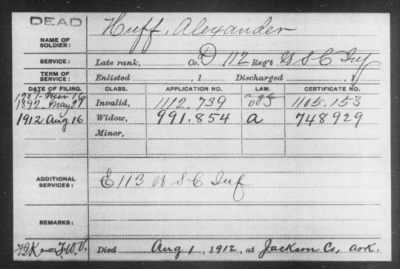 DEAD
NAME OF SOLDIER: Huff, Alexander
SERVICE: Late rank, Co. D 112 Reg't U S C Inf
TERM OF SERVICE: Enlisted , 1 Discharged , 1
DATE OF FILING. CLASS. APPLICATION NO. LAW. CERTIFICATE NO.
1892-May 27 Invalid, 1112.739 1105.153
1912 Aug 16 Widow, 991.854 a 748929
Minor,
ADDITIONAL SERVICES: E 113 U S C Inf
REMARKS:
Died Aug 1, 1912, at Jackson Co, Ark.